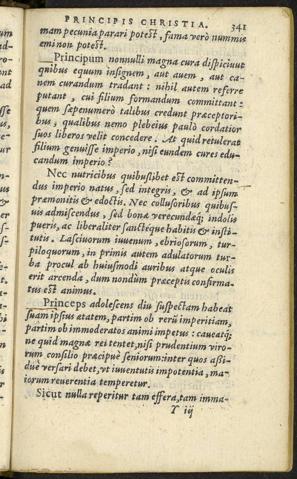 PRINCIPIS CHRISTIA. 341
mam pecunia parari potest, fama verò nummis
emi non potest.
Principum nonnulli magna cura dispiciunt
quibus equum insignem, aut auem, aut ca-
nem curandum tradant: nihil autem referre
putant, cui filium formandum committant:
quem sapenumerò talibus credunt præceptori-
bus, qualibus nemo plebeius paulò cordatior
suos liberos velit concedere. At quid retulerat
filium genuisse imperio, nisi eundem cures edu-
candum imperio?
Nec nutricibus quibuslibet est committen-
dus imperio natus, sed integris, & ad ipsum
præmonitis & edoctis. Nec collusoribus quibus-
uis admiscendus, sed bonæ verecundæq; indolis
pueris, ac liberaliter sanctéque habitis & insti-
tutis. Lasciuorum iuuenum, ebriosorum, tur-
piloquorum, in primis autem adulatorum tur-
ba procul ab huiusmodi auribus atque oculis
erit arcenda, dum nondum præceptis confirma-
tus est animus.
Princeps adolescens diu suspectam habeat
suam ipsius ætatem, partim ob rerū imperitiam,
partim ob immoderatos animi impetus: caueatq;
ne quid magnæ rei tentet, nisi prudentium viro-
rum consilio præcipuè seniorum: inter quos aßi-
duè versari debet, vt iuuentutis impotentia, ma-
iorum reuerentia temperetur.
Sicut nulla reperitur tam effera, tam imma-
Y iij